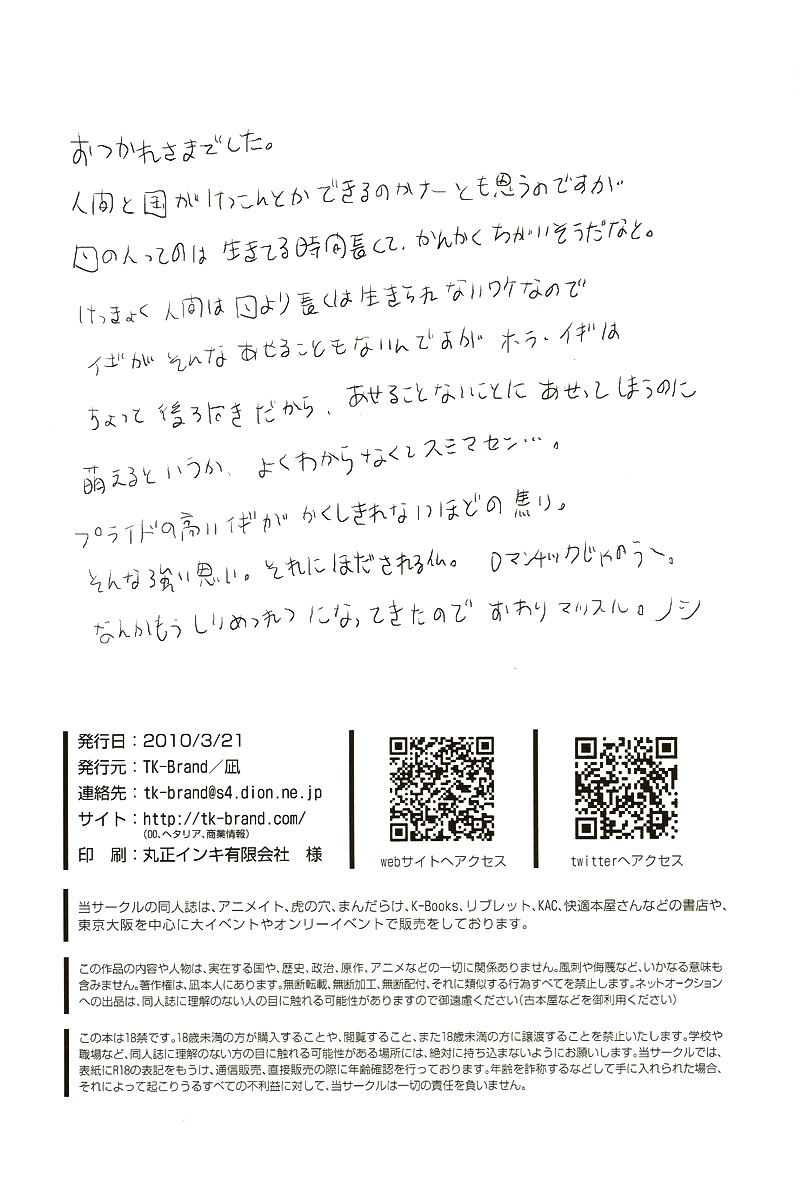 おつかれさまでした。
人間と国がけっこんとかできるのかナーとも思うのですが
国の人ってのは生きてる時間長くて、かんかくちがいそうだなと。
けっきょく人間は国より長くは生きられないワケなので
イギがそんなあせることもないんですがホラ・イギは
ちょっと後ろ向きだから、あせることないことにあせってしまうのに
萌えるというか、よくわからなくてスミマセン…。
プライドの高いイギがかくしきれないほどの焦り。
そんな強い思い。それにほだされる仏。ロマンチックじゃのう〜。
なんかもうしりめつれつになってきたのでおわりマッスル。ノシ
発行日：2010/3/21
発行元：TK-Brand／凪
連絡先：tk-brand@s4.dion.ne.jp
サイト：http://tk-brand.com/
（OO、ヘタリア、商業情報）
印　刷：丸正インキ有限会社　様
webサイトへアクセス
twitterへアクセス
当サークルの同人誌は、アニメイト、虎の穴、まんだらけ、K-Books、リブレット、KAC、快適本屋さんなどの書店や、
東京大阪を中心に大イベントやオンリーイベントで販売をしております。
この作品の内容や人物は、実在する国や、歴史、政治、原作、アニメなどの一切に関係ありません。風刺や侮蔑など、いかなる意味も
含みません。著作権は、凪本人にあります。無断転載、無断加工、無断配付、それに類似する行為すべてを禁止します。ネットオークション
への出品は、同人誌に理解のない人の目に触れる可能性がありますので御遠慮ください（古本屋などを御利用ください）
この本は18禁です。18歳未満の方が購入することや、閲覧すること、また18歳未満の方に譲渡することを禁止いたします。学校や
職場など、同人誌に理解のない方の目に触れる可能性がある場所には、絶対に持ち込まないようにお願いします。当サークルでは、
表紙にR18の表記をもうけ、通信販売、直接販売の際に年齢確認を行っております。年齢を詐称するなどして手に入れられた場合、
それによって起こりうるすべての不利益に対して、当サークルは一切の責任を負いません。